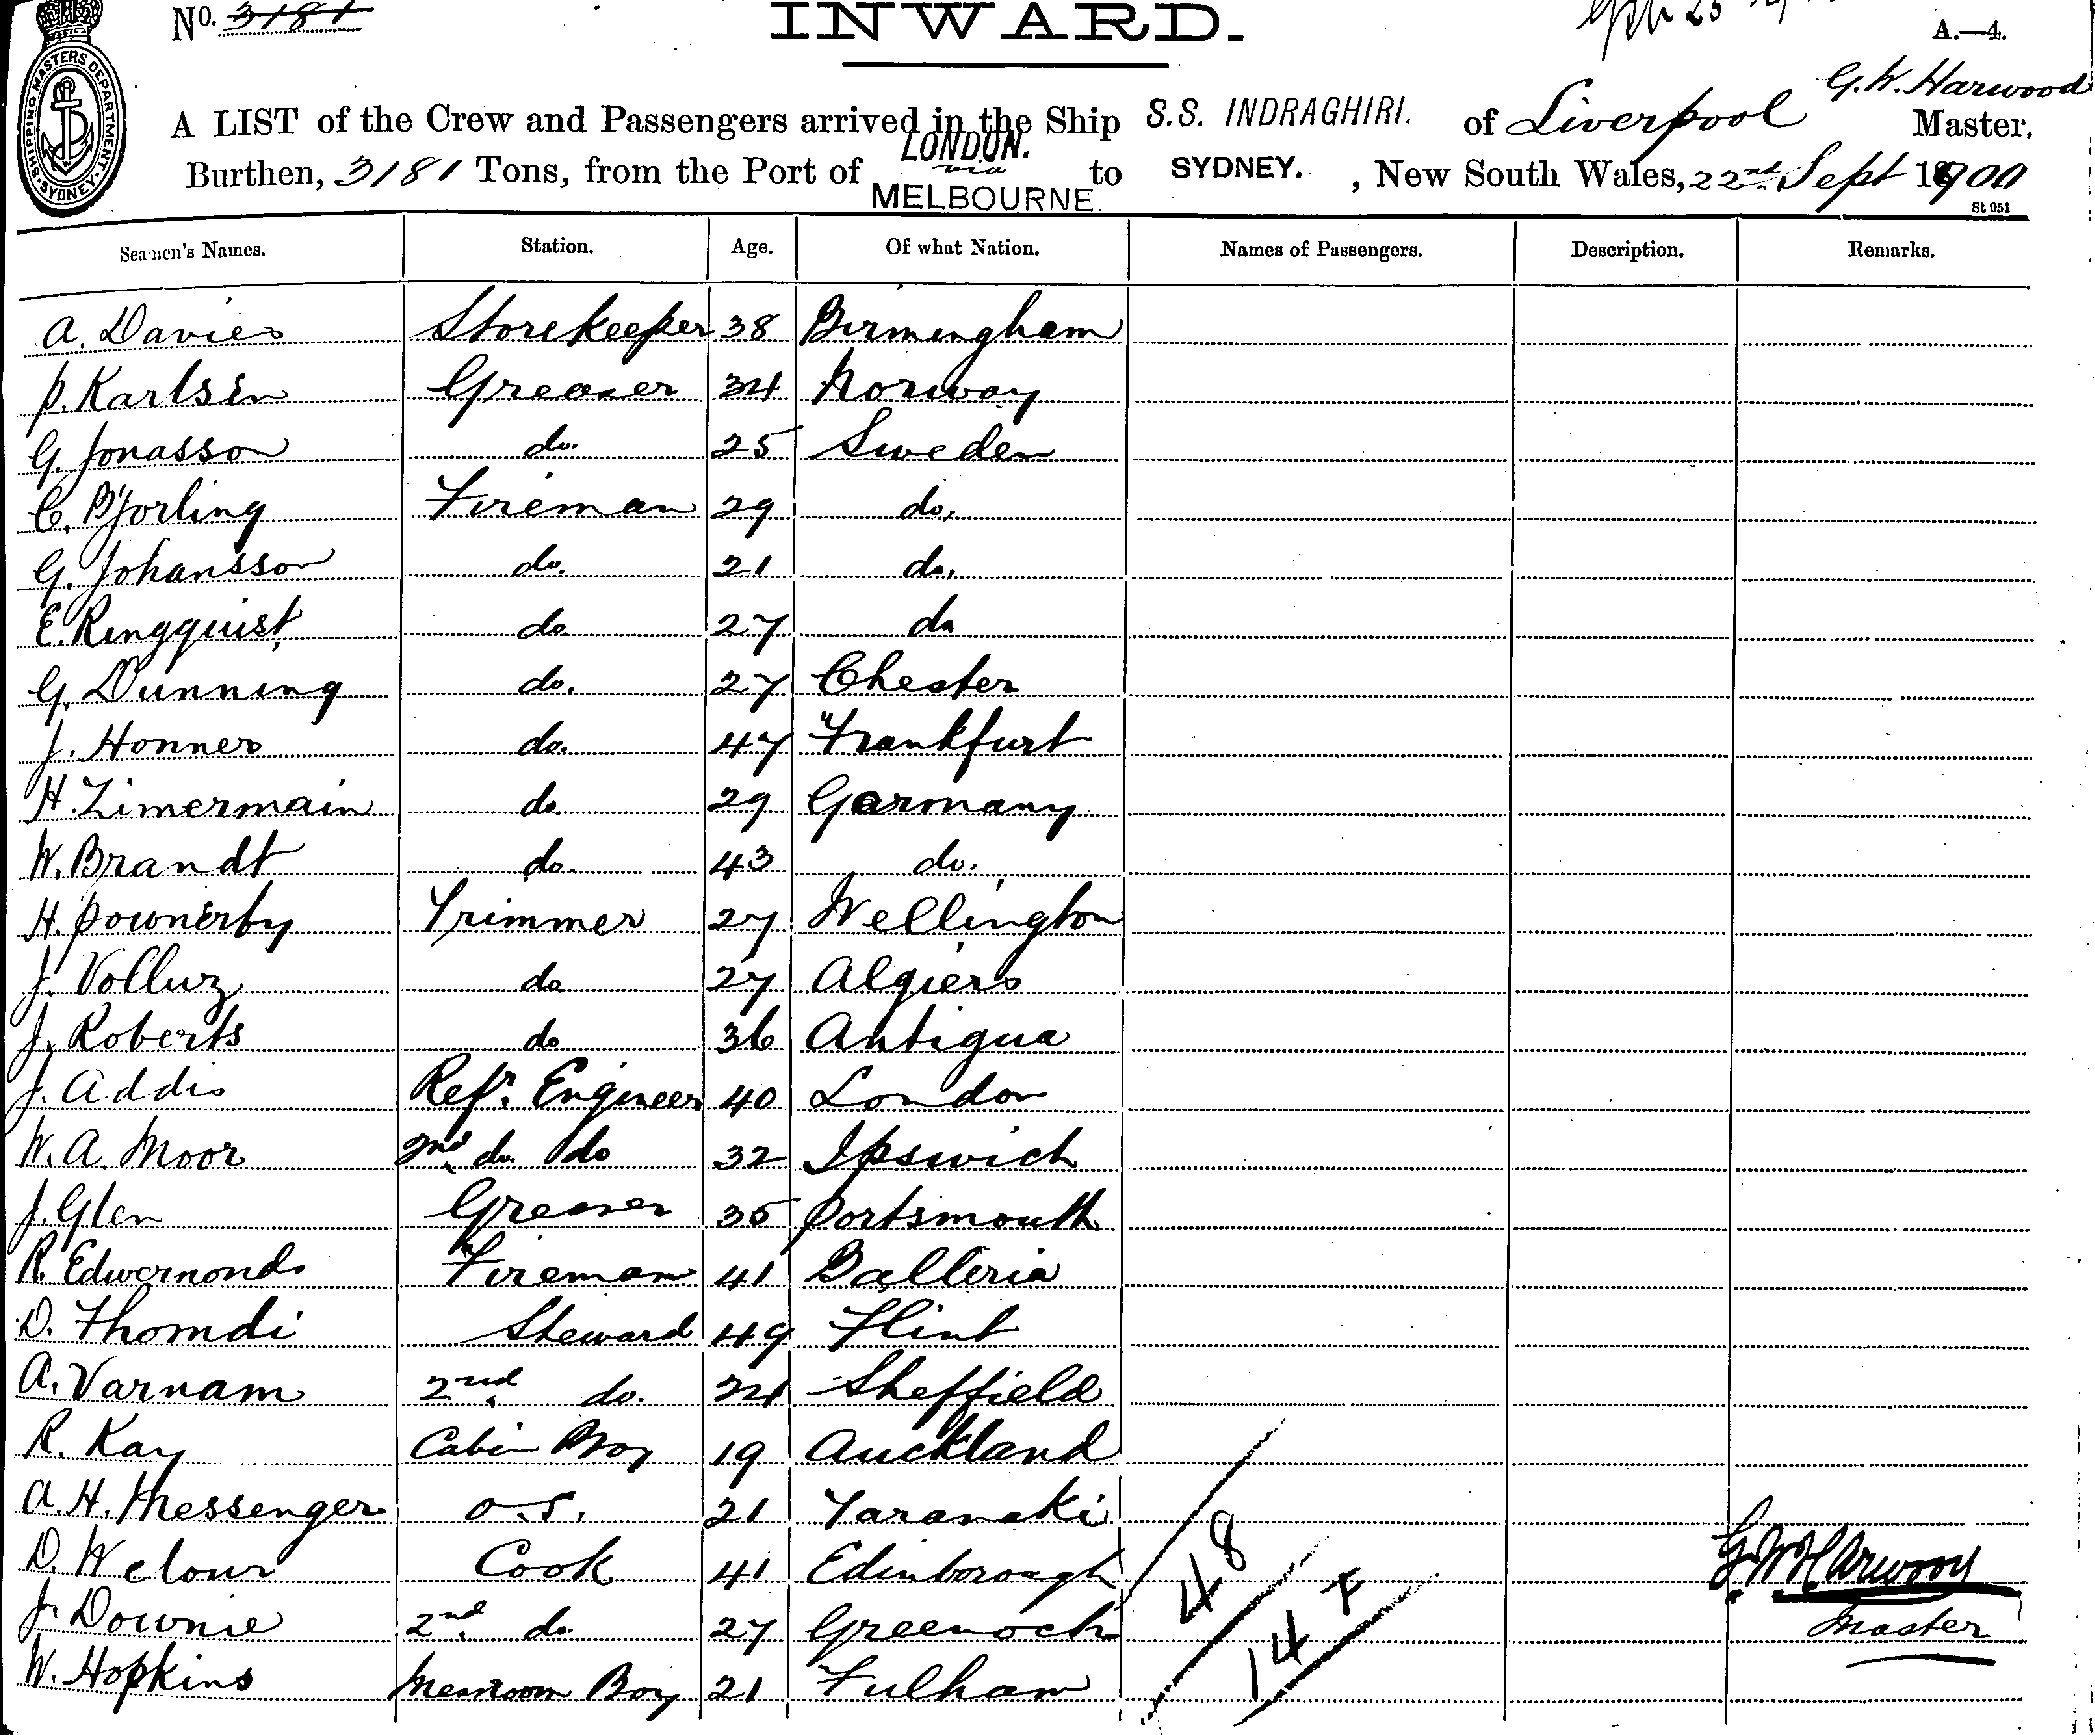 No. 3181
INWARD.
A.—4.
SHIPPING MASTERS DEPARTMENT. SYDNEY.
G. W. Harwood
A LIST of the Crew and Passengers arrived in the Ship S.S. INDRAGHIRI. of Liverpool Master.
LONDON.
via
Burthen, 3181 Tons, from the Port of MELBOURNE. to SYDNEY. , New South Wales, 22nd Sept 1900
St 051
Seamen's Names. Station. Age. Of what Nation. Names of Passengers. Description. Remarks.
A. Davies Storekeeper 38 Birmingham
P. Karlsen Greaser 34 Norway
G. Jonasson do. 25 Sweden
C. Bjorling Fireman 29 do.
G. Johansson do. 21 do.
E. Ringquist do 27 do
G. Dunning do. 27 Chester
J. Honner do. 47 Frankfurt
H. Zimermain do 29 Garmany
W. Brandt do. 43 do.
H. Pownerby Trimmer 27 Wellington
J. Volluz do 27 Algiers
J. Roberts do 36 Antigua
J. Addis Refr. Engineer 40 London
W. A. Moor 2nd do. do 32 Ipswich
J. Glen Greaser 35 Portsmouth
R. Fireman 41
D. Thomdi Steward 49 Flint
A. Varnam 2nd do. 24 Sheffield
R. Kay Cabin Boy 19 Auckland
A. H. Messenger O.S. 21 Taranaki
D. Welour Cook 41 Edinborough
G. W. Harwood
J. Downie 2nd. do. 27 Greenock
Master
W. Hopkins Messroom Boy 21 Fulham
48
14 F